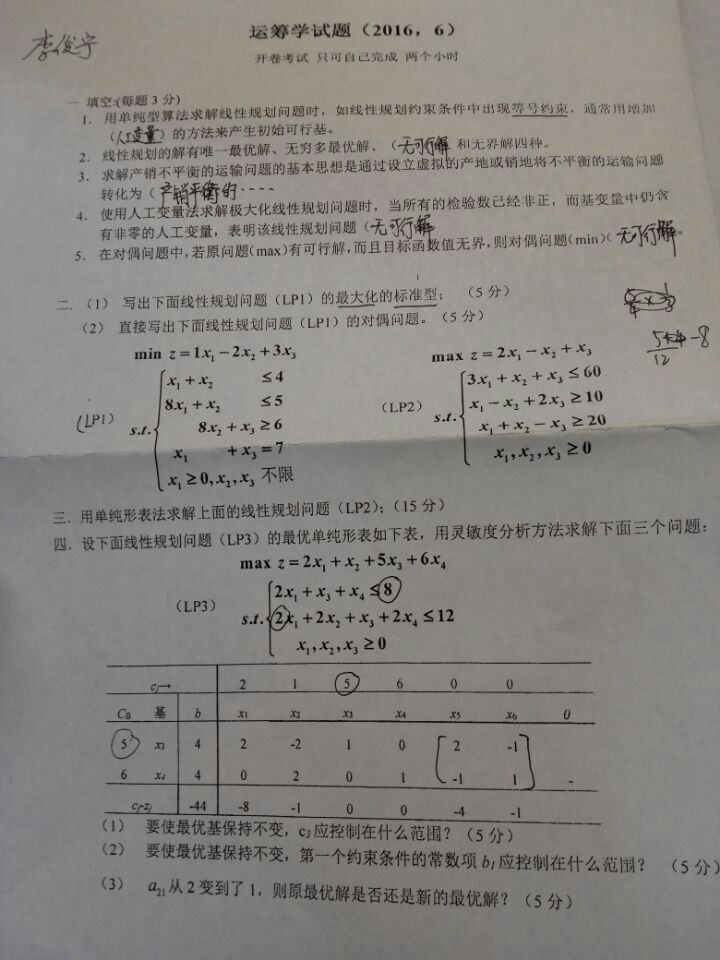 运筹学试题（2016，6）
李俊宇
开卷考试 只可自己完成 两个小时
一 填空:(每题3分)
1. 用单纯型算法求解线性规划问题时，如线性规划约束条件中出现等号约束，通常用增加
（人工变量）的方法来产生初始可行基。
2. 线性规划的解有唯一最优解、无穷多最优解、（无可行解 和无界解四种。
3. 求解产销不平衡的运输问题的基本思想是通过设立虚拟的产地或销地将不平衡的运输问题
转化为（产销平衡的----
4. 使用人工变量法求解极大化线性规划问题时，当所有的检验数已经非正，而基变量中仍含
有非零的人工变量，表明该线性规划问题（无可行解
5. 在对偶问题中,若原问题(max)有可行解,而且目标函数值无界,则对偶问题(min)（无可行解。
二.（1） 写出下面线性规划问题（LP1）的最大化的标准型； （5 分）
（2） 直接写出下面线性规划问题（LP1）的对偶问题。（5 分）
-8
12
min z=1x₁-2x₂+3x₃
(LP1)
s.t.
x₁+x₂ ≤4
8x₁+x₂ ≤5
8x₂+x₃≥6
x₁ +x₃=7
x₁≥0,x₂,x₃ 不限
max z=2x₁-x₂+x₃
（LP2）
s.t.
3x₁+x₂+x₃≤60
x₁-x₂+2x₃≥10
x₁+x₂-x₃≥20
x₁,x₂,x₃≥0
三. 用单纯形表法求解上面的线性规划问题（LP2）；（15 分）
四. 设下面线性规划问题（LP3）的最优单纯形表如下表，用灵敏度分析方法求解下面三个问题：
max z=2x₁+x₂+5x₃+6x₄
（LP3）
s.t.
2x₁+x₃+x₄≤8
2x₁+2x₂+x₃+2x₄≤12
x₁,x₂,x₃≥0
cⱼ→ 2 1 5 6 0 0
C_B 基 b x₁ x₂ x₃ x₄ x₅ x₆ θ
5 x₃ 4 2 -2 1 0 2 -1
6 x₄ 4 0 2 0 1 -1 1 -
cⱼ-zⱼ -44 -8 -1 0 0 -4 -1
（1） 要使最优基保持不变，c₃应控制在什么范围？（5 分）
（2） 要使最优基保持不变，第一个约束条件的常数项 b₁应控制在什么范围？ （5 分）
（3） a₂₁从 2 变到了 1，则原最优解是否还是新的最优解？（5 分）